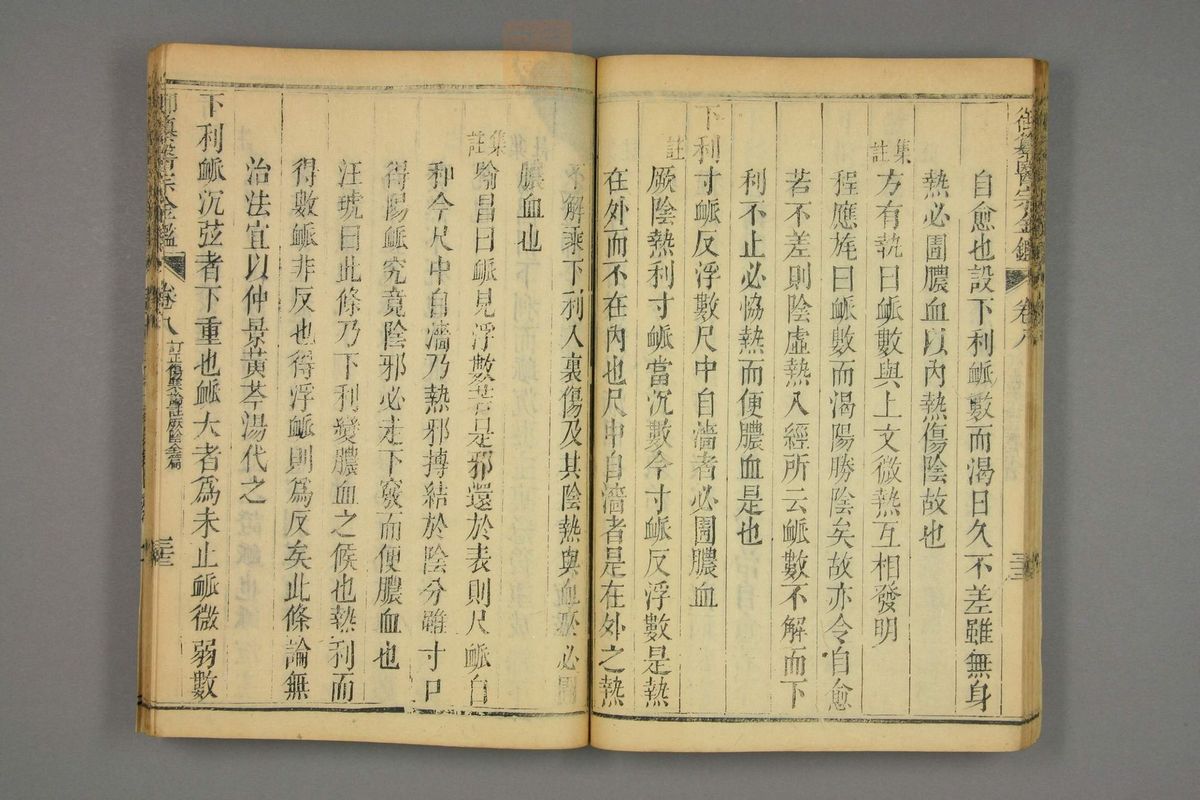 御纂醫宗金鑑 卷八 三三
自愈也設下利脈數而渴日久不差雖無身
熱必圊膿血以內熱傷陰故也
集註
方有執曰脈數與上文微熱互相發明
程應旄曰脈數而渴陽勝陰矣故亦令自愈
若不差則陰虛熱入經所云脈數不解而下
利不止必恊熱而便膿血是也
下利寸脈反浮數尺中自濇者必圊膿血
註
厥陰熱利寸脈當沉數今寸脈反浮數是熱
在外而不在內也尺中自濇者是在外之熱
不解乘下利入裏傷及其陰熱與血瘀必圊
膿血也
集註
喻昌曰脈見浮數若是邪還於表則尺脈自
和今尺中自濇乃熱邪摶結於陰分雖寸口
得陽脈究竟陰邪必走下竅而便膿血也
汪琥曰此條乃下利變膿血之候也熱利而
得數脈非反也得浮脈則爲反矣此條論無
治法宜以仲景黃芩湯代之
下利脈沉弦者下重也脈大者爲未止脈微弱數
御纂醫宗金鑑 卷八 訂正傷寒論註厥陰全篇 三三